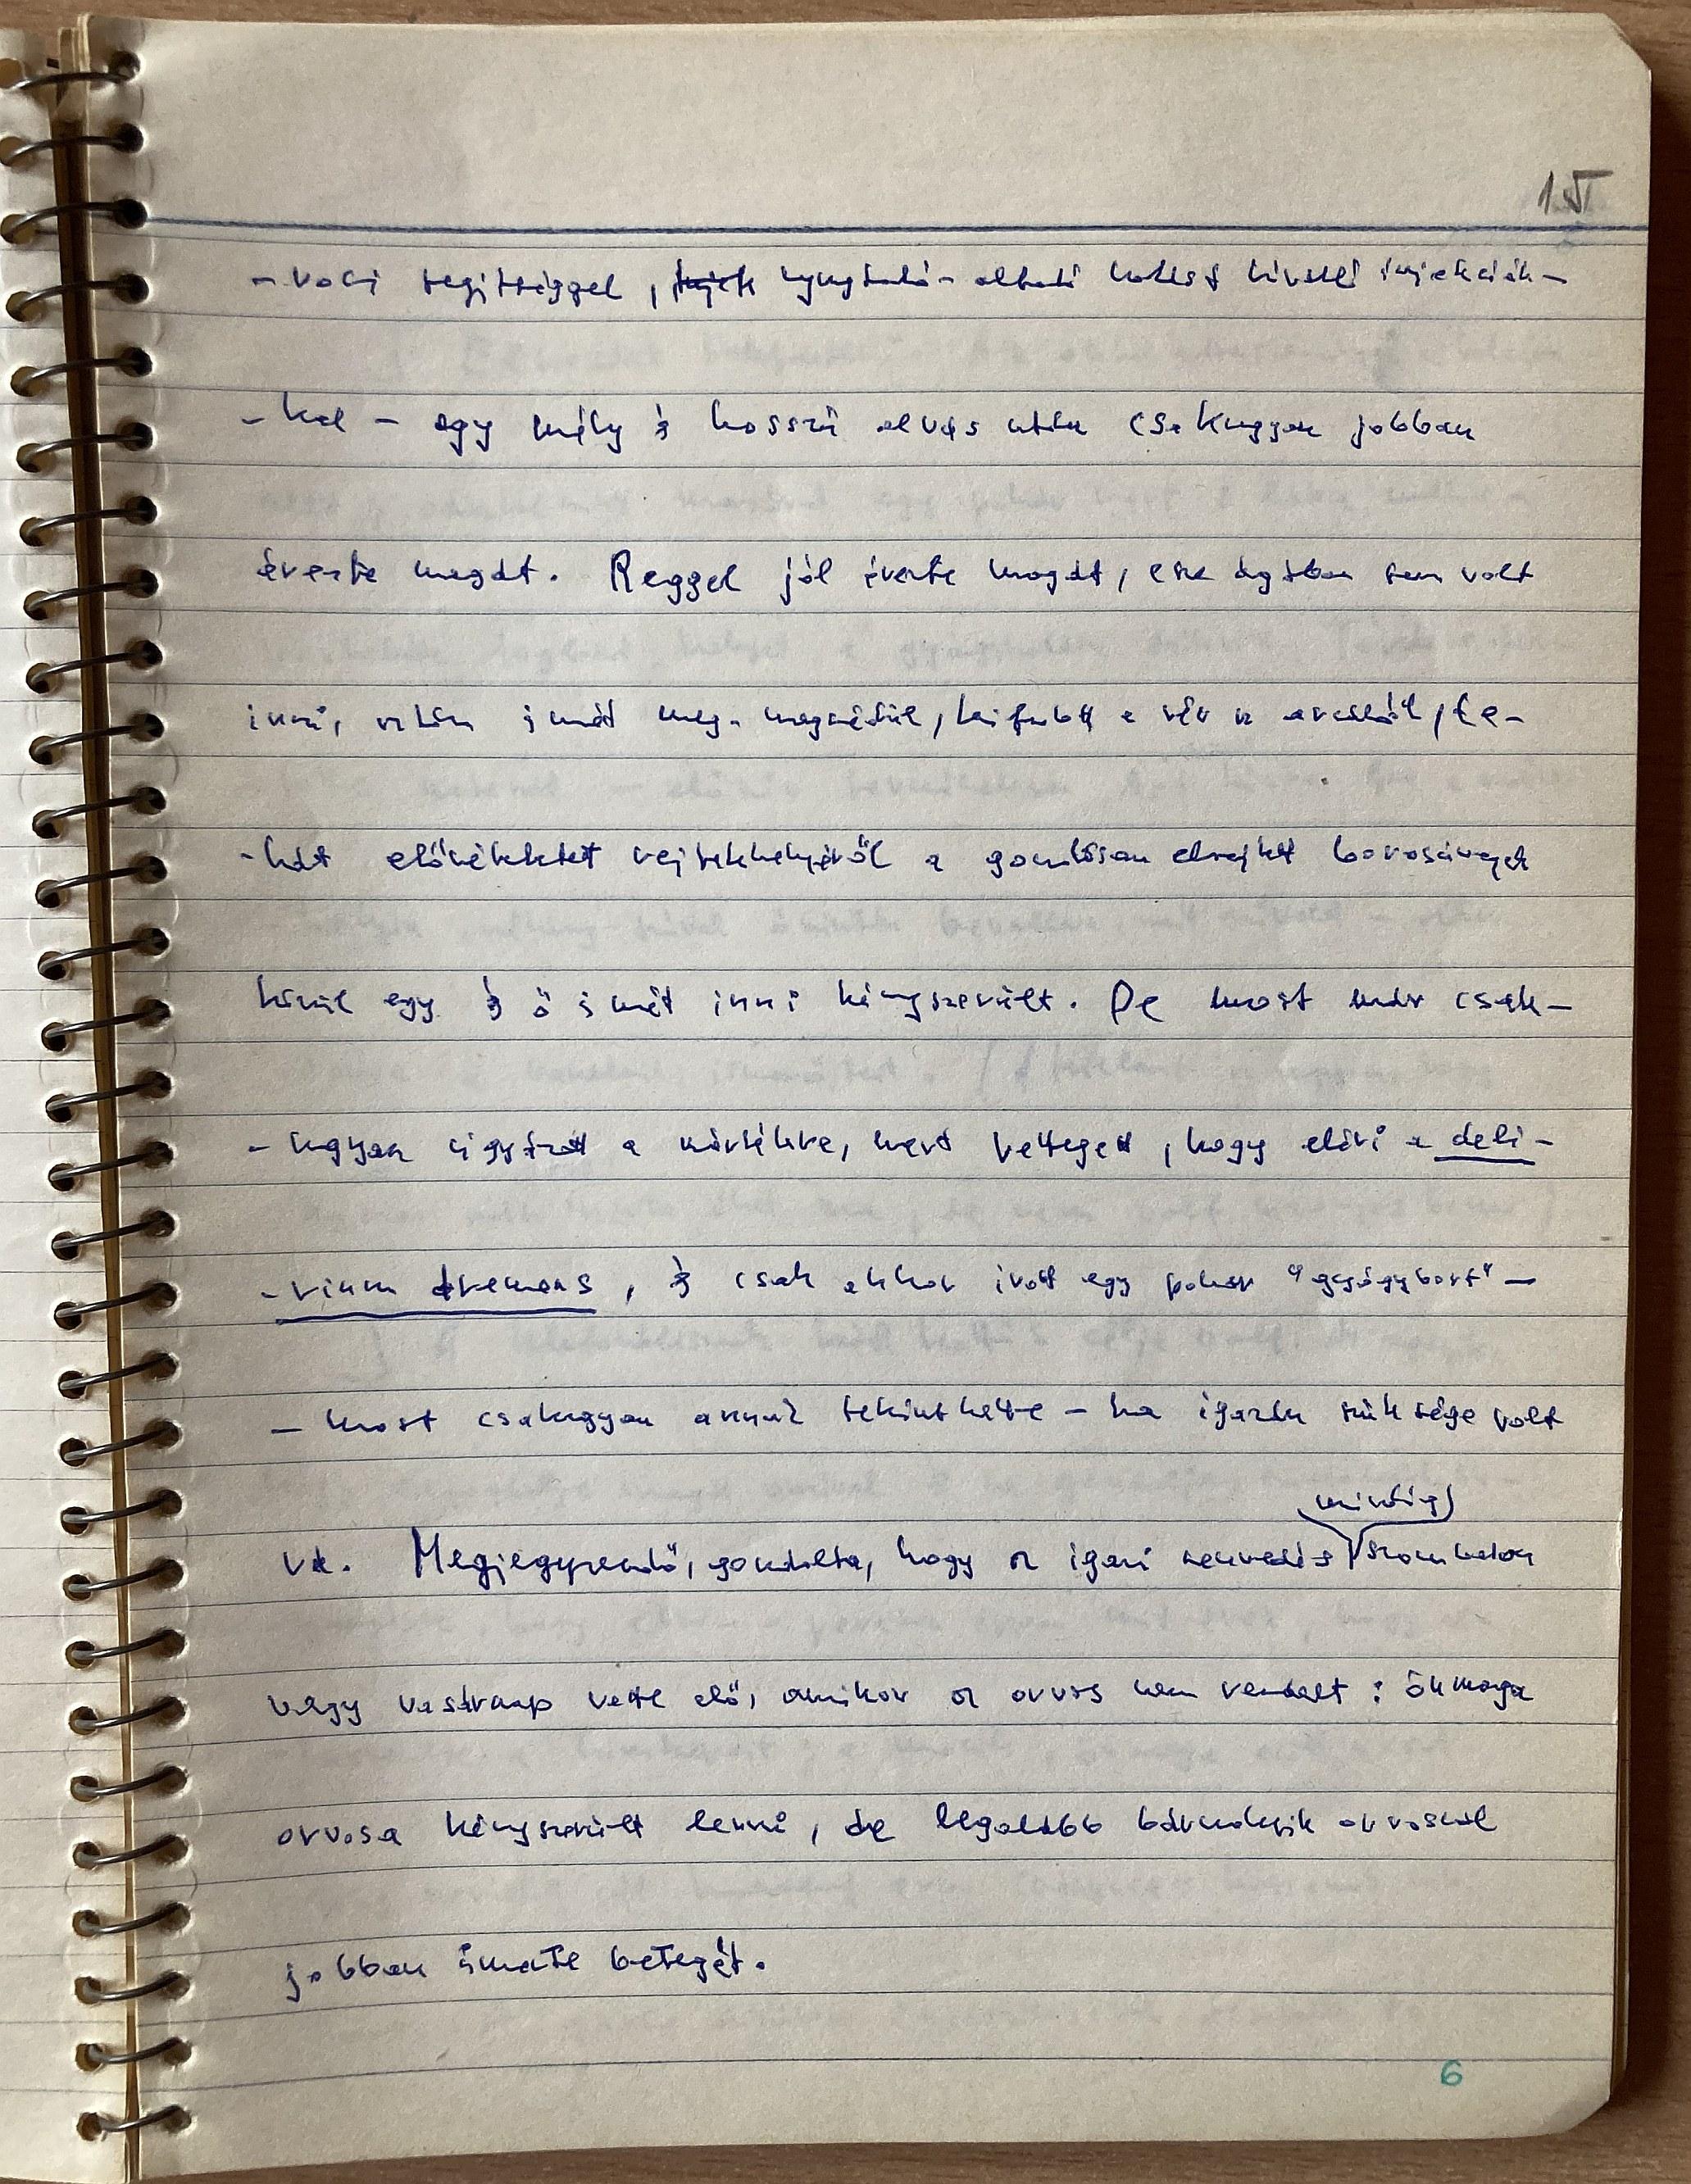 15
-vosi segítséggel, nyugtató-altató hatást kiváltó injekciók-
-kal - egy mély és hosszú alvás után csakugyan jobban
érezte magát. Reggel jól érezte magát, esze ágában sem volt
inni, aztán ismét meg- megszédült, kifutott a vér az arcából, te-
-hát elővétetett rejtekhelyéről a gondosan elrejtett borosüveget
körül egy és ő ismét inni kényszerült. De most már csak-
-ugyan vigyázott a mértékre, mert rettegett, hogy eléri a deli-
-rium tremens, és csak akkor ivott egy pohár "gyógybort" -
- most csakugyan annak tekinthette - ha igazán szüksége volt
rá. Megjegyzendő, gondolta, hogy az igazi szenvedés szombaton
mindig
vagy vasárnap vette elő, amikor az orvos nem rendelt: önmaga
orvosa kényszerült lenni, de legalább bármelyik orvosnál
jobban ismerte betegét.
6